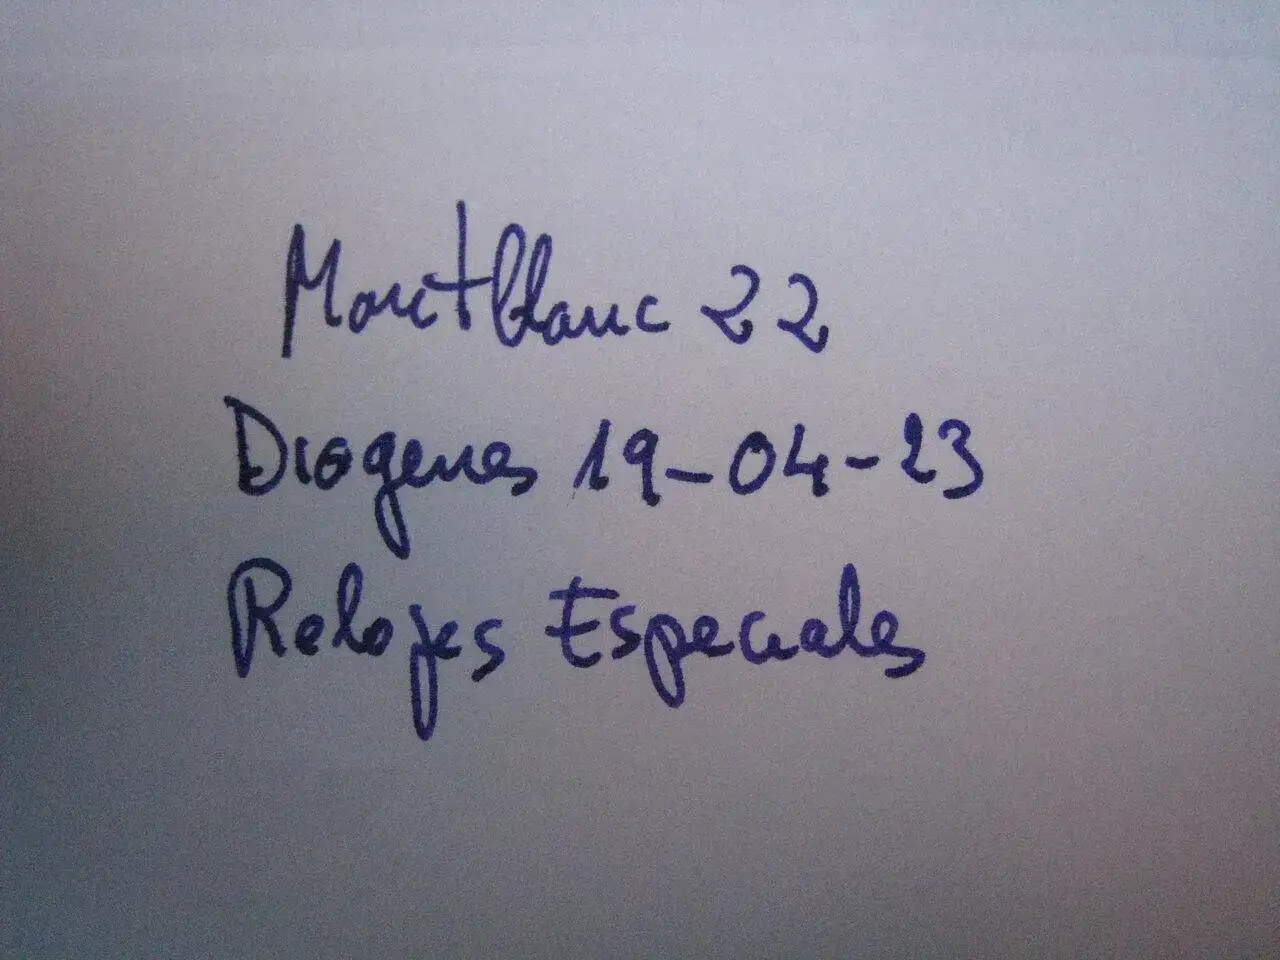 Montblanc 22
Diogenes 19-04-23
Relojes Especiales